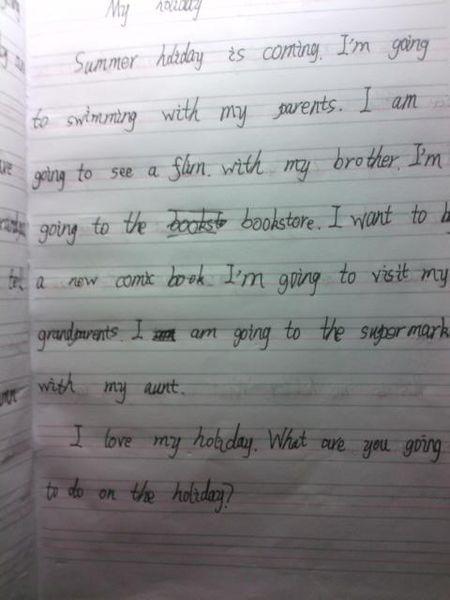 My holiday
Summer holiday is coming. I'm going
to swimming with my parents. I am
going to see a film. with my brother. I'm
going to the bookstore. I want to b
a new comic book I'm going to visit my
grandparents. I am going to the supermark
with my aunt.
I love my holiday. What are you going
to do on the holiday?